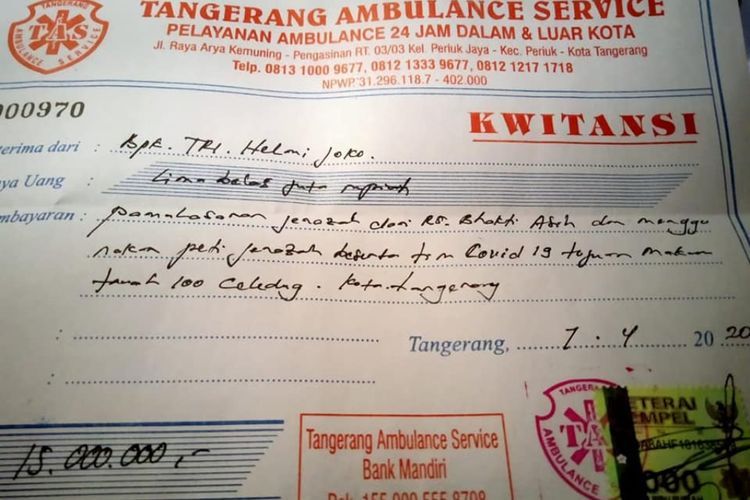 TANGERANG AMBULANCE SERVICE
PELAYANAN AMBULANCE 24 JAM DALAM & LUAR KOTA
Jl. Raya Arya Kemuning - Pengasinan RT. 03/03 Kel. Periuk Jaya - Kec. Periuk - Kota Tangerang
Telp. 0813 1000 9677, 0812 1333 9677, 0812 1217 1718
NPWP 31.296.118.7 - 402.000
TANGERANG
TAS
AMBULANCE SERVICE
000970
KWITANSI
erima dari : Bpk. TRI. Helmi Joko.
ya Uang : Lima belas juta rupiah
mbayaran : pemulasaran jenazah dari RS. Bhakti Asih dan menggu
nakan peti jenazah beserta tim Covid 19 tujuan makam
tanah 100 Celedug. Kota tangerang
Tangerang, 7 - 4 20 20
15.000.000,-
Tangerang Ambulance Service
Bank Mandiri
Rek: 155 000 555 8708
TANGERANG
TAS
AMBULANCE
METERAI
TEMPEL
000